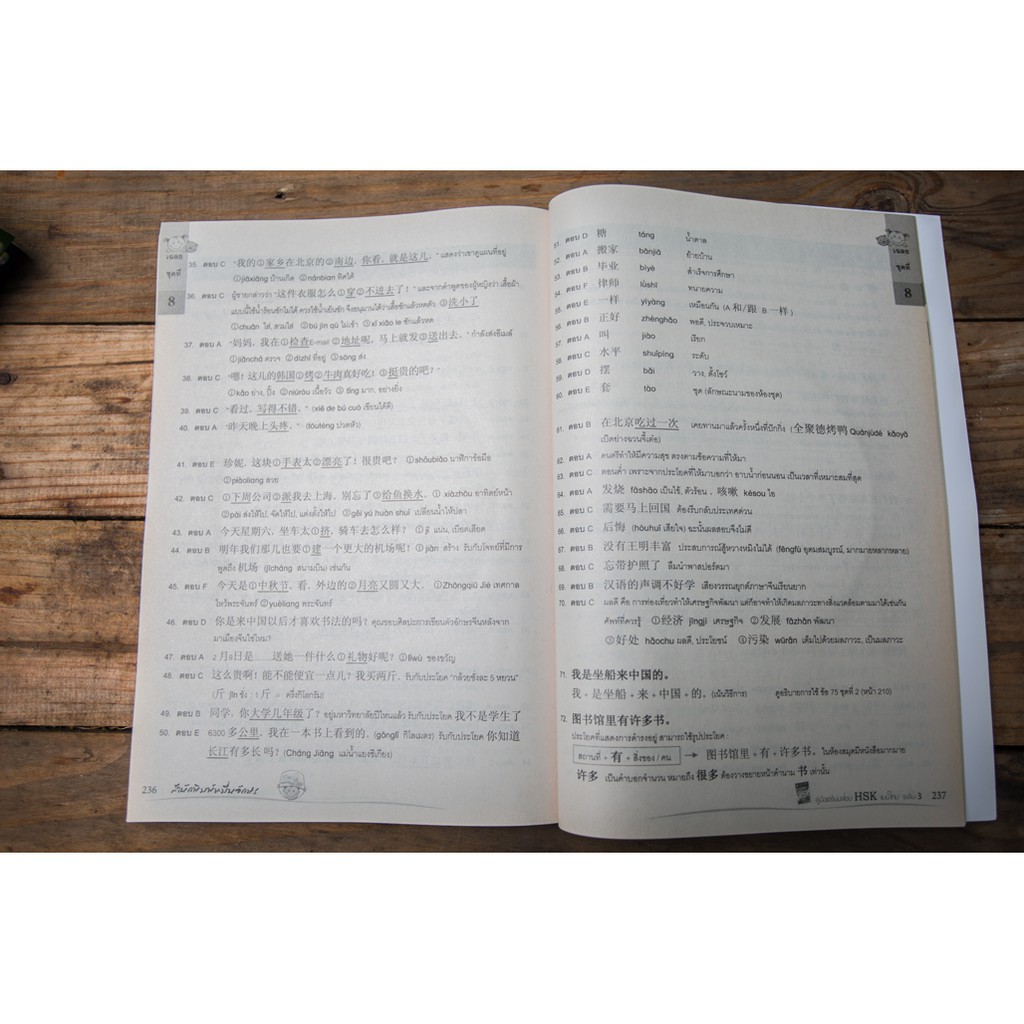 เฉลย
ชุดที่
8
35. ตอบ C "我的①家乡在北京的②南边, 你看, 就是这儿。" แสดงว่าเขาดูแผนที่อยู่
①jiāxiāng บ้านเกิด ②nánbian ทิศใต้
36. ตอบ C ผู้ชายกล่าวว่า "这件衣服怎么①穿②不进去了!" และจากคำพูดของผู้หญิงว่า เสื้อผ้า
แบบนี้ใช้น้ำร้อนซักไม่ได้ ควรใช้น้ำเย็นซัก จึงอนุมานได้ว่าเสื้อซักแล้วหดตัว ③洗小了
①chuān ใส่, สวมใส่ ②bú jìn qù ไม่เข้า ③xǐ xiǎo le ซักแล้วหด
37. ตอบ A "妈妈, 我在①检查E-mail ②地址呢, 马上就发③送出去。" กำลังส่งอีเมล์
①jiǎnchá ตรวจ ②dìzhǐ ที่อยู่ ③sòng ส่ง
38. ตอบ C "嗯! 这儿的韩国①烤②牛肉真好吃! ③挺贵的吧?"
①kǎo ย่าง, ปิ้ง ②niúròu เนื้อวัว ③tǐng มาก, อย่างยิ่ง
39. ตอบ C "看过, 写得不错。" (xiě de bú cuò เขียนได้ดี)
40. ตอบ A "昨天晚上头疼。" (tóuténg ปวดหัว)
41. ตอบ E 珍妮, 这块①手表太②漂亮了! 很贵吧? ①shǒubiǎo นาฬิกาข้อมือ
②piàoliang สวย
42. ตอบ C ①下周公司②派我去上海, 别忘了③给鱼换水。 ①xiàzhōu อาทิตย์หน้า
②pài ส่งให้ไป, จัดให้ไป, แต่งตั้งให้ไป ③gěi yú huàn shuǐ เปลี่ยนน้ำให้ปลา
43. ตอบ A 今天星期六, 坐车太①挤, 骑车去怎么样? ①jǐ แน่น, เบียดเสียด
44. ตอบ B 明年我们那儿也要①建一个更大的机场呢! ①jiàn สร้าง รับกับโจทย์ที่มีการ
พูดถึง 机场 (jīchǎng สนามบิน) เช่นกัน
45. ตอบ F 今天是①中秋节, 看, 外边的②月亮又圆又大. ①Zhōngqiū Jié เทศกาล
ไหว้พระจันทร์ ②yuèliang พระจันทร์
46. ตอบ D 你是来中国以后才喜欢书法的吗? คุณชอบศิลปะการเขียนตัวอักษรจีนหลังจาก
มาเมืองจีนใช่ไหม?
47. ตอบ A 2月8日是......送她一件什么①礼物好呢? ①lǐwù ของขวัญ
48. ตอบ C 这么贵啊! 能不能便宜一点儿? 我买两斤。 รับกับประโยค "กล้วยชั่งละ 5 หยวน"
(斤 jīn ชั่ง : 1 斤 = ครึ่งกิโลกรัม)
49. ตอบ B 同学, 你大学几年级了? อยู่มหาวิทยาลัยปีไหนแล้ว รับกับประโยค 我不是学生了
50. ตอบ E 6300 多公里, 我在一本书上看到的。(gōnglǐ กิโลเมตร) รับกับประโยค 你知道
长江有多长吗? (Cháng Jiāng แม่น้ำแยงซีเกียง)
236 สำนักพิมพ์หมื่นอักษร
เฉลย
ชุดที่
8
51. ตอบ D 糖 táng น้ำตาล
52. ตอบ A 搬家 bānjiā ย้ายบ้าน
53. ตอบ B 毕业 bìyè สำเร็จการศึกษา
54. ตอบ F 律师 lǜshī ทนายความ
55. ตอบ E 一样 yíyàng เหมือนกัน (A 和/跟 B 一样)
56. ตอบ B 正好 zhènghǎo พอดี, ประจวบเหมาะ
57. ตอบ A 叫 jiào เรียก
58. ตอบ C 水平 shuǐpíng ระดับ
59. ตอบ D 摆 bǎi วาง, ตั้งโชว์
60. ตอบ E 套 tào ชุด (ลักษณะนามของห้องชุด)
61. ตอบ B 在北京吃过一次 เคยทานมาแล้วครั้งหนึ่งที่ปักกิ่ง (全聚德烤鸭 Quánjùdé kǎoyā
เป็ดย่างฉวนจวี้เต๋อ)
62. ตอบ A ดนตรีทำให้มีความสุข ตรงตามข้อความที่ให้มา
63. ตอบ C ตอนค่ำ เพราะจากประโยคที่ให้มาบอกว่า อาบน้ำก่อนนอน เป็นเวลาที่เหมาะสมที่สุด
64. ตอบ A 发烧 fāshāo เป็นไข้, ตัวร้อน , 咳嗽 késou ไอ
65. ตอบ C 需要马上回国 ต้องรีบกลับประเทศด่วน
66. ตอบ C 后悔 (hòuhuǐ เสียใจ) ฉะนั้นผลสอบจึงไม่ดี
67. ตอบ B 没有王明丰富 ประสบการณ์สู้หวางหมิงไม่ได้ (fēngfù อุดมสมบูรณ์, มากมายหลากหลาย)
68. ตอบ C 忘带护照了 ลืมนำพาสปอร์ตมา
69. ตอบ B 汉语的声调不好学 เสียงวรรณยุกต์ภาษาจีนเรียนยาก
70. ตอบ C ผลดี คือ การท่องเที่ยวทำให้เศรษฐกิจพัฒนา แต่ก็อาจทำให้เกิดมลภาวะทางสิ่งแวดล้อมตามมาได้เช่นกัน
ศัพท์ที่ควรรู้ ①经济 jīngjì เศรษฐกิจ ②发展 fāzhǎn พัฒนา
③好处 hǎochu ผลดี, ประโยชน์ ④污染 wūrǎn เต็มไปด้วยมลภาวะ, เป็นมลภาวะ
71. 我是坐船来中国的。
我 + 是坐船 + 来 + 中国 + 的。(เน้นวิธีการ) ดูอธิบายการใช้ ข้อ 75 ชุดที่ 2 (หน้า 210)
72. 图书馆里有许多书。
ประโยคที่แสดงการดำรงอยู่ สามารถใช้รูปประโยค :
สถานที่ + 有 + สิ่งของ / คน → 图书馆里 + 有 + 许多书。 ในห้องสมุดมีหนังสือมากมาย
许多 เป็นคำบอกจำนวน หมายถึง 很多 ต้องวางขยายหน้าคำนาม 书 เท่านั้น
คู่มือเตรียมสอบ HSK แนวใหม่ ระดับ 3 237